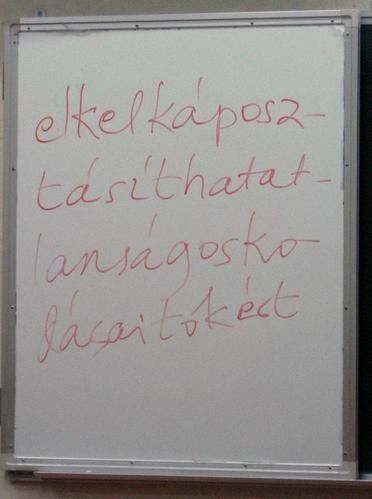 elkelkáposz-
tásíthatat-
lanságosko-
dásaitókért